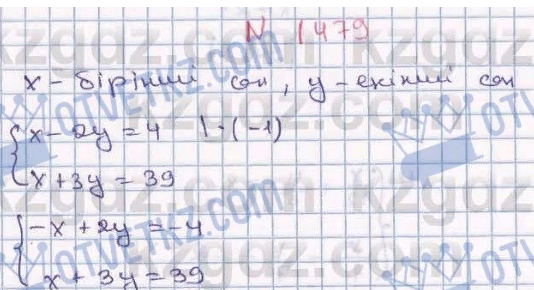 N 1479
x - бірінші сан, y - екінші сан
{ x - 2y = 4 | · (-1)
x + 3y = 39
{ -x + 2y = -4
x + 3y = 39
kzgdz.com
OTVETKZ.COM